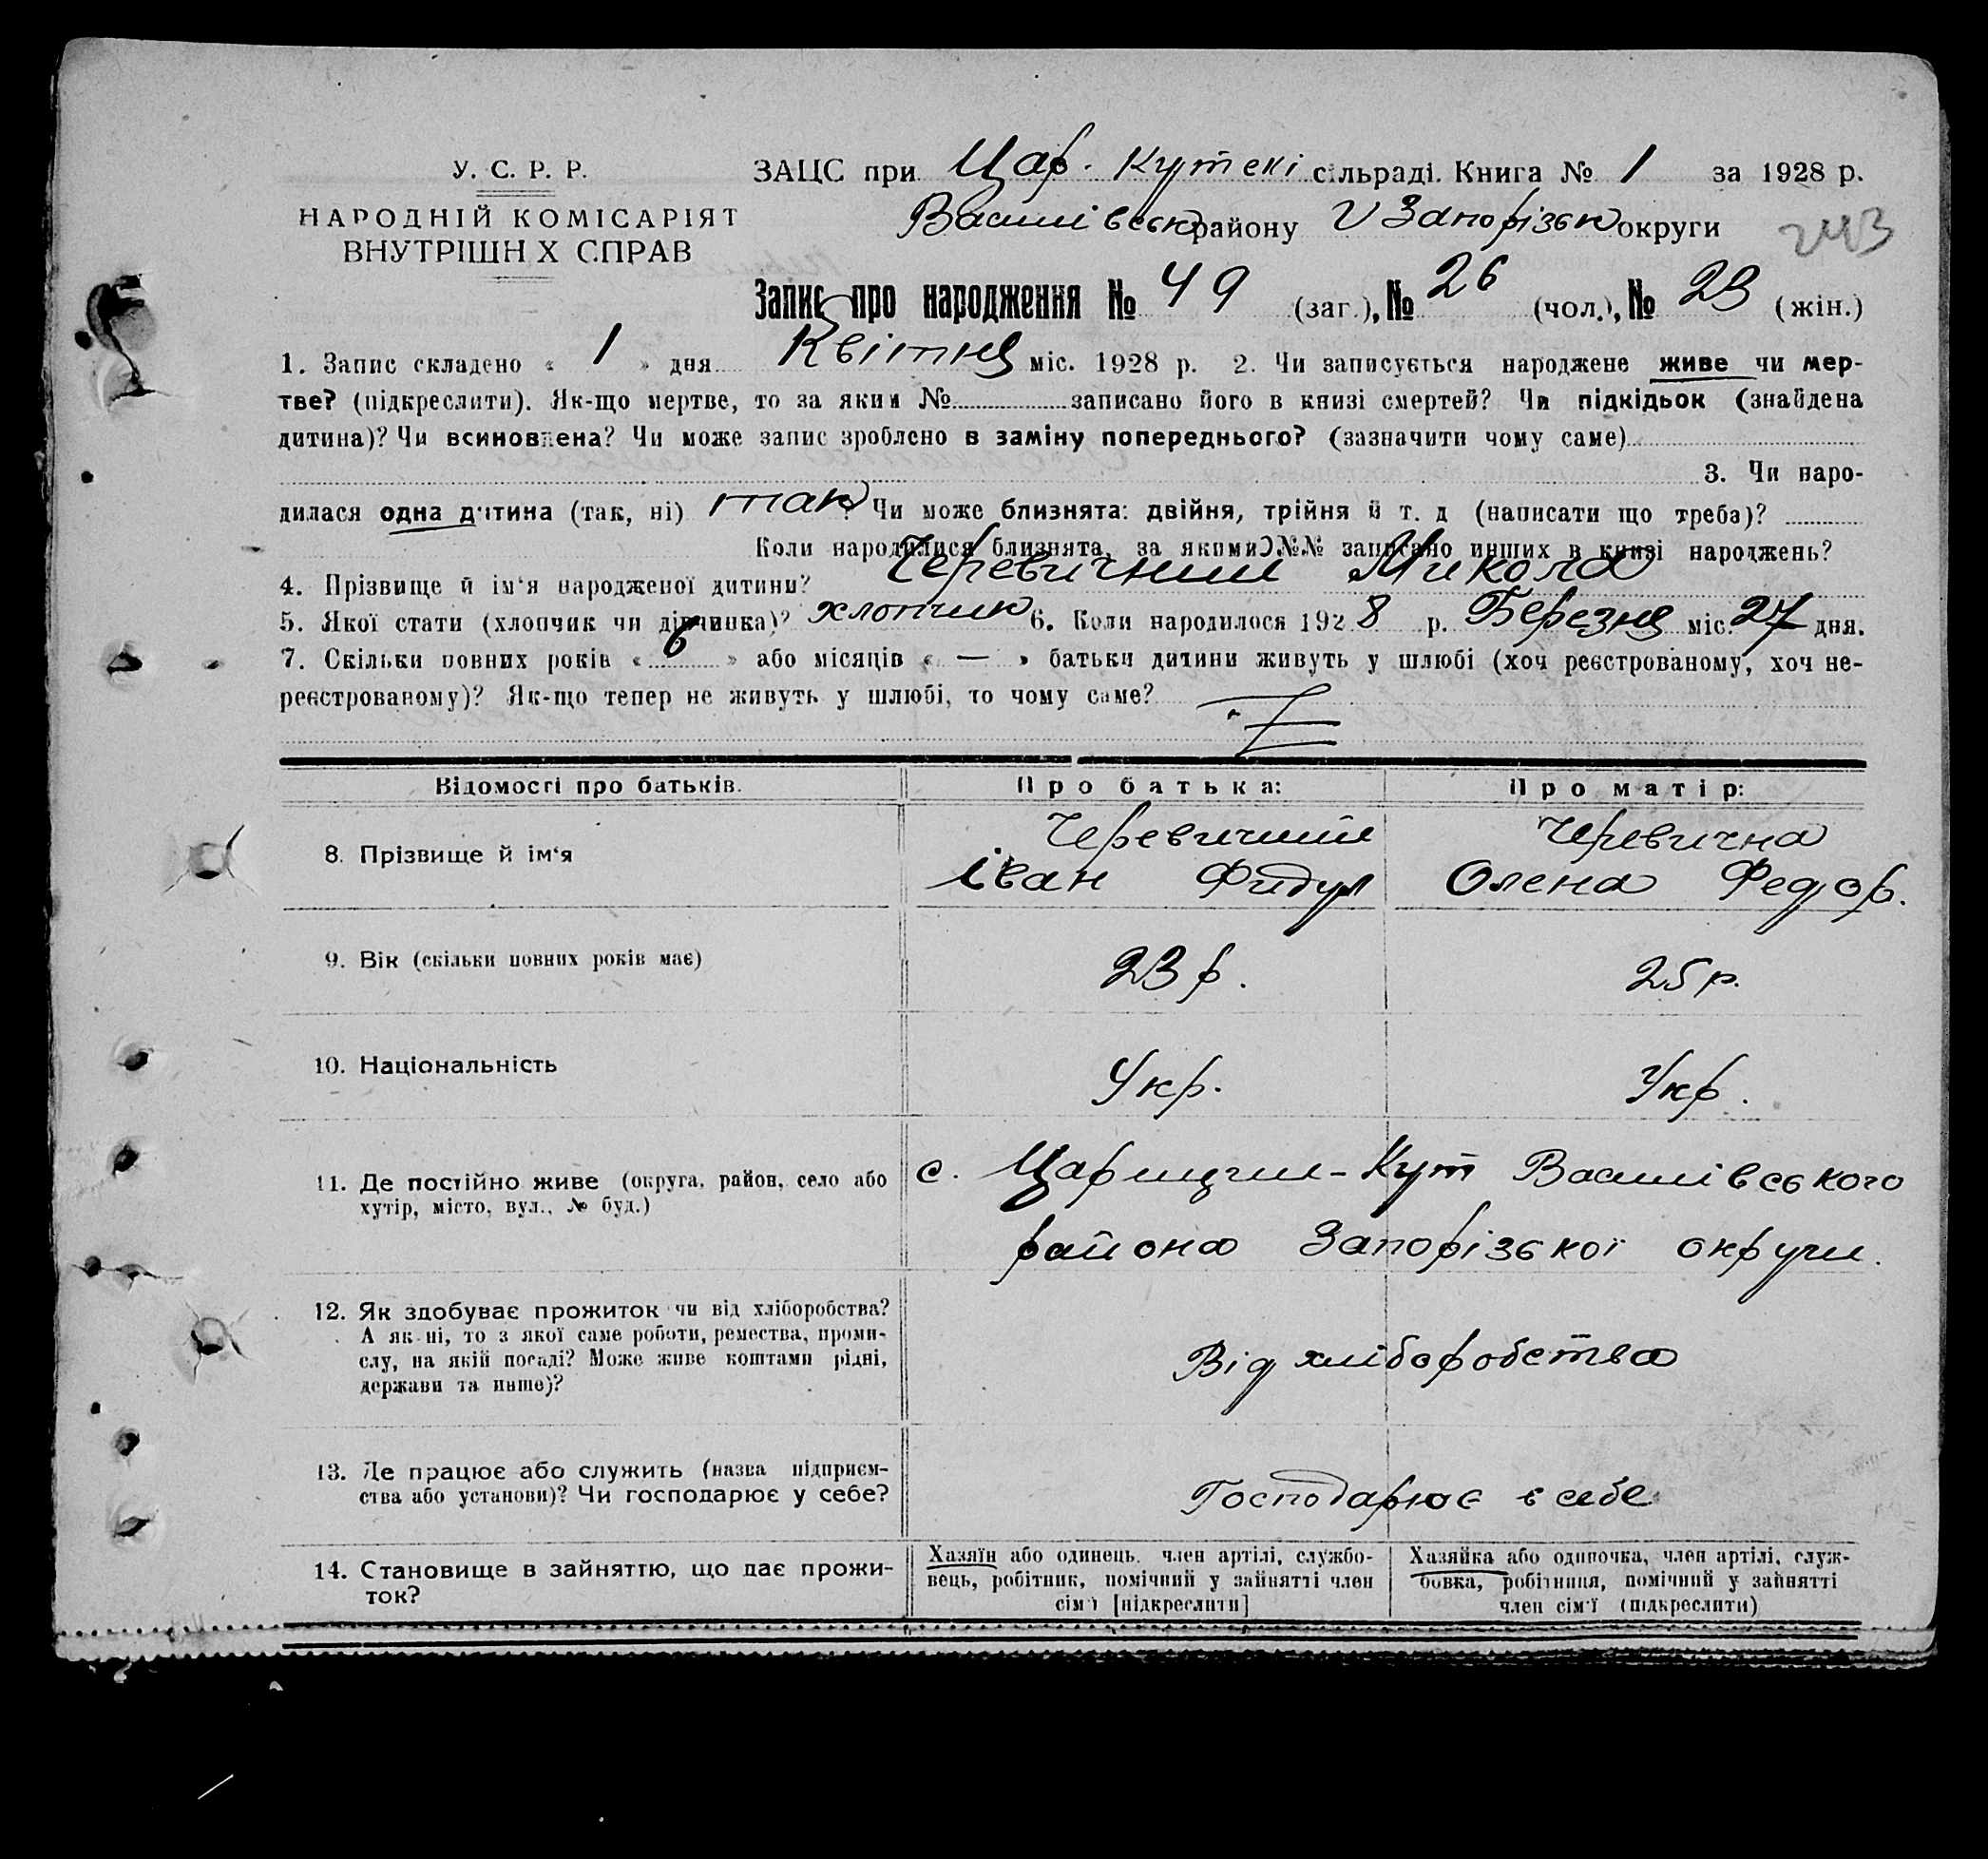 У. С. Р. Р.
НАРОДНІЙ КОМІСАРІЯТ
ВНУТРІШН Х СПРАВ
ЗАЦС при Цар. Кутскі сільраді. Книга № 1 за 1928 р.
Василівськ району Запорізьк округи
243
Запис про народження № 49 (заг.), № 26 (чол.), № 23 (жін.)
1. Запис складено « 1 » дня Квітня міс. 1928 р. 2. Чи записується народжене живе чи мер-
тве? (підкреслити). Як-що мертве, то за яким № записано його в книзі смертей? Чи підкідьок (знайдена
дитина)? Чи всиновлена? Чи може запис зроблено в заміну попереднього? (зазначити чому саме)
3. Чи наро-
дилася одна дитина (так, ні) так? Чи може близнята: двійня, трійня й т. д (написати що треба)?
Коли народилися близнята, за якими №№ записано инших в книзі народжень?
4. Прізвище й ім'я народженої дитини? Черевичний Микола
5. Якої стати (хлопчик чи дівчинка)? хлопчик 6. Коли народилося 1928 р. Березня міс. 27 дня.
7. Скільки повних років « 6 » або місяців « — » батьки дитини живуть у шлюбі (хоч реєстрованому, хоч не-
реєстрованому)? Як-що тепер не живуть у шлюбі, то чому саме?
Відомості про батьків. Про батька: Про матір:
8. Прізвище й ім'я Черевичний Черевична
Іван Фидул Олена Федор.
9. Вік (скільки повних років має) 23 р. 25 р.
10. Національність Укр. Укр.
11. Де постійно живе (округа, район, село або
хутір, місто, вул., № буд.)
с. Царицин-Кут Василівського
района Запорізької округи.
12. Як здобуває прожиток чи від хліборобства?
А як ні, то з якої саме роботи, ремества, проми-
слу, на якій посаді? Може живе коштами рідні,
держави та инше)?
Від хліборобства
13. Де працює або служить (назва підприєм-
ства або установи)? Чи господарює у себе?
Господарює в себе
14. Становище в зайняттю, що дає прожи-
ток?
Хазяїн або одинець, член артілі, службо-
вець, робітник, помічний у зайнятті член
сім'ї [підкреслити]
Хазяйка або одиночка, член артілі, служ-
бовка, робітниця, помічний у зайнятті
член сім'ї (підкреслити)